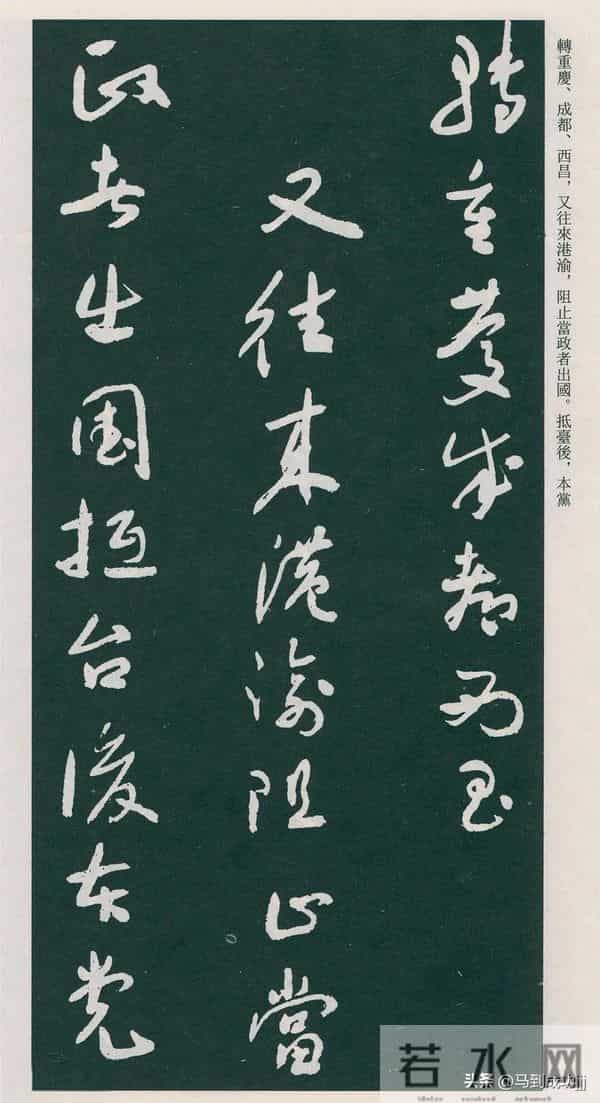 轉重慶、成都、西昌，又往來港渝，阻止當政者出國。抵臺後，本黨
轉重慶成都西昌
又往来港渝阻止當
政者出國抵台後本党
若水网
头条 @马到成功jj